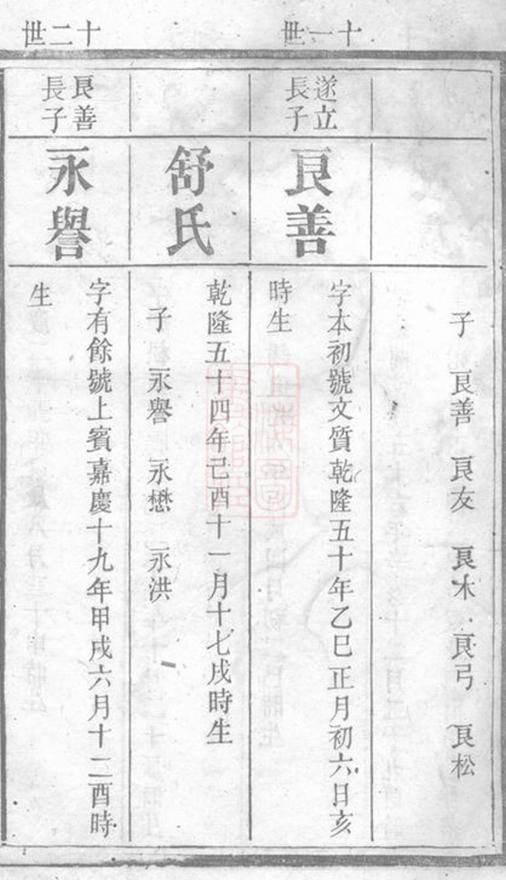 十一世
十二世
子 良善 良友 良木 良弓 良松
遂立
長子
良善
字本初號文質乾隆五十年乙巳正月初六日亥
時生
舒氏
乾隆五十四年己酉十一月十七戌時生
子 永譽 永懋 永洪
良善
長子
永譽
字有餘號上賓嘉慶十九年甲戌六月十二酉時
生